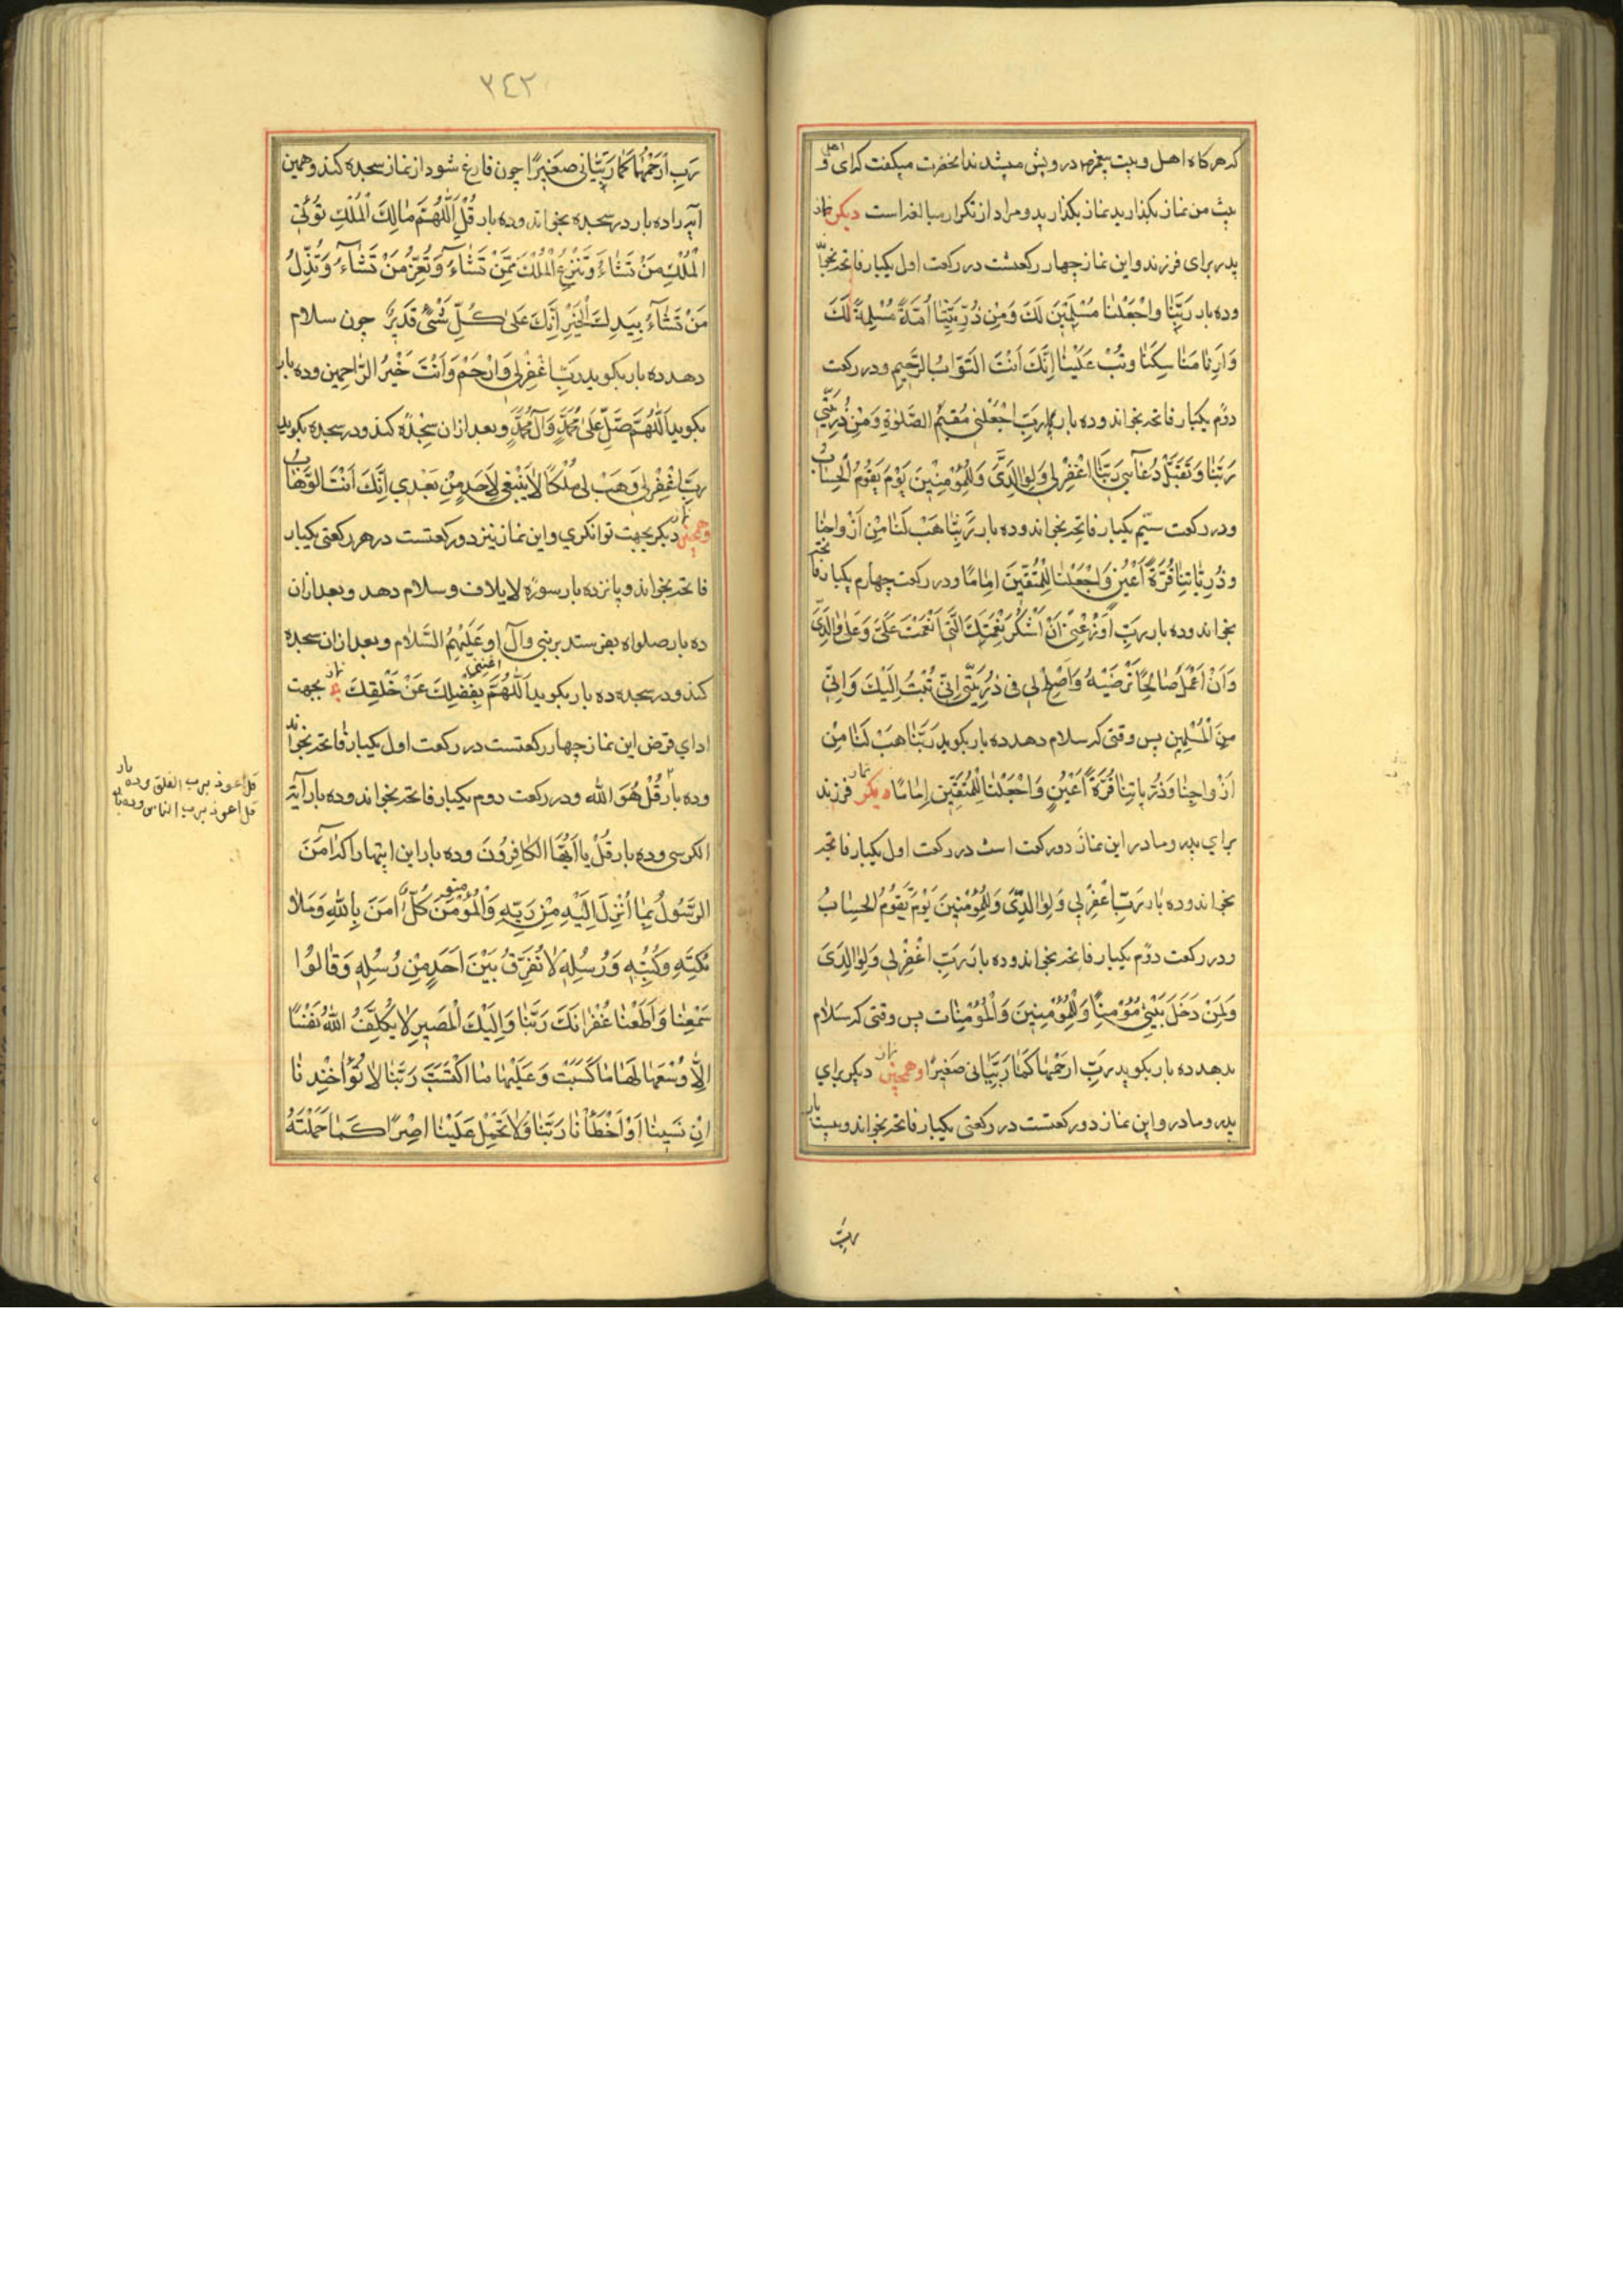 که هرگاه اهل و بیت پیغمبر ص درویش میشدند انحضرت میکفت که ای و اهل
بیت من نماز بکذارید نماز بکذارید و مراد از تکرار مبالغه است دیکر نماز
پدر برای فرزند و این نماز چهار رکعتست در رکعت اول یکبار فاتحه بخواند
و ده بار رَبَّنٰا وَاجْعَلْنٰا مُسْلِمَیْنِ لَكَ وَمِنْ ذُرِّیَّتِنٰا اُمَّةً مُسْلِمَةً لَكَ
وَاَرِنٰا مَنٰاسِکَنٰا وَتُبْ عَلَیْنٰا اِنَّكَ اَنْتَ التَّوّٰابُ الرَّحیٖمِ و در رکعت
دوّم یکبار فاتحه بخواند و ده بار رَبِّ اجْعَلْنیٖ مُقیٖمَ الصَّلٰوةِ وَمِنْ ذُرِّیَّتیٖ
رَبَّنٰا وَتَقَبَّلْ دُعٰآئیٖ رَبَّنَا اغْفِرْلیٖ وَلِوٰالِدَیَّ وَلِلْمُؤْمِنیٖنَ یَوْمَ یَقُومُ الْحِسٰابُ
و در رکعت سیّم یکبار فاتحه بخواند و ده بار رَبَّنٰا هَبْ لَنٰا مِنْ اَزْوٰاجِنٰا
وَذُرِّیّٰاتِنٰا قُرَّةَ اَعْیُنٍ وَاجْعَلْنٰا لِلْمُتَّقیٖنَ اِمٰامًا و در رکعت چهارم یکبار فاتحه
بخواند و ده بار رَبِّ اَوْزِعْنیٖ اَنْ اَشْکُرَ نِعْمَتَكَ الَّتیٖ اَنْعَمْتَ عَلَیَّ وَعَلٰی وٰالِدَیَّ
وَاَنْ اَعْمَلَ صٰالِحًا تَرْضَیٰهُ وَاَصْلِحْ لیٖ فیٖ ذُرِّیَّتیٖ اِنّیٖ تُبْتُ اِلَیْكَ وَاِنّیٖ
مِنَ الْمُسْلِمیٖنَ پس وقتی که سلام دهد ده بار بکوید رَبَّنٰا هَبْ لَنٰا مِنْ
اَزْوٰاجِنٰا وَذُرِّیّٰاتِنٰا قُرَّةَ اَعْیُنٍ وَاجْعَلْنٰا لِلْمُتَّقیٖنَ اِمٰامًا نماز دیکر فرزند
برای پدر و مادر این نماز دو رکعت است در رکعت اول یکبار فاتحه
بخواند و ده بار رَبِّ اغْفِرْلیٖ وَلِوٰالِدَیَّ وَلِلْمُؤْمِنیٖنَ یَوْمَ یَقُومُ الْحِسٰابُ
و در رکعت دوّم یکبار فاتحه بخواند و ده بار رَبِّ اغْفِرْلیٖ وَلِوٰالِدَیَّ
وَلِمَنْ دَخَلَ بَیْتیٖ مُؤْمِنًا وَلِلْمُؤْمِنیٖنَ وَالْمُؤْمِنٰاتِ پس وقتی که سلام
بدهد ده بار بکوید رَبِّ ارْحَمْهُمٰا کَمٰا رَبَّیٰانیٖ صَغیٖرًا و همچنین نماز دیکر برای
پدر و مادر و این نماز دو رکعتست در رکعتی یکبار فاتحه بخواند و بیست بار
رَبِّ
۳٤۲
رَبِّ ارْحَمْهُمٰا کَمٰا رَبَّیٰانیٖ صَغیٖرًا چون فارغ شود از نماز سجده کند و همین
آیه را ده بار در سجده بخواند و ده بار قُلِ اللّٰهُمَّ مٰالِكَ الْمُلْكِ تُؤْتیِ
الْمُلْكَ مَنْ تَشٰاءُ وَتَنْزِعُ الْمُلْكَ مِمَّنْ تَشٰآءُ وَتُعِزُّ مَنْ تَشٰآءُ وَتُذِلُّ
مَنْ تَشٰآءُ بِیَدِكَ الْخَیْرُ اِنَّكَ عَلٰی کُلِّ شَیْءٍ قَدیٖرٌ چون سلام
دهد ده بار بکوید رَبِّ اغْفِرْلیٖ وَارْحَمْ وَاَنْتَ خَیْرُ الرّٰاحِمیٖنَ و ده بار
بکوید اَللّٰهُمَّ صَلِّ عَلٰی مُحَمَّدٍ وَآلِ مُحَمَّدٍ و بعد از ان سجده کند و در سجده بکوید
رَبِّ اغْفِرْلیٖ وَهَبْ لیٖ مُلْکًا لٰا یَنْبَغیٖ لِاَحَدٍ مِنْ بَعْدیٖ اِنَّكَ اَنْتَ الْوَهّٰابُ
و همچنین نماز دیکر بجهت توانکری و این نماز نیز دو رکعتست در هر رکعتی یکبار
فاتحه بخواند و پانزده بار سورهٔ لایلاف و سلام دهد و بعد از ان
ده بار صلواه بفرستد بر نبی و آل او عَلَیْهِمُ السَّلٰام و بعد از ان سجده
کند و در سجده ده بار بکوید اَللّٰهُمَّ اغننی بِفَضْلِكَ عَنْ خَلْقِكَ نماز بجهت
ادای قرض این نماز چهار رکعتست در رکعت اول یکبار فاتحه بخواند
و ده بار قُلْ هُوَ الله و در رکعت دوم یکبار فاتحه بخواند و ده بار آیة
الکرسی و ده بار قُلْ یٰا اَیُّهَا الْکٰافِرُونَ و ده بار این ایتها را که اٰمَنَ
الرَّسُولُ بِمٰا اُنْزِلَ اِلَیْهِ مِنْ رَبِّهِ وَالْمُؤْمِنُونَ کُلٌّ اٰمَنَ بِاللّٰهِ وَمَلٰا
ئِکَتِهِ وَکُتُبِهِ وَرُسُلِهِ لٰا نُفَرِّقُ بَیْنَ اَحَدٍ مِنْ رُسُلِهِ وَقٰالُوا
سَمِعْنٰا وَاَطَعْنٰا غُفْرٰانَكَ رَبَّنٰا وَاِلَیْكَ الْمَصیٖرُ لٰا یُکَلِّفُ اللّٰهُ نَفْسًا
اِلّٰا وُسْعَهٰا لَهٰا مٰا کَسَبَتْ وَعَلَیْهٰا مَا اکْتَسَبَتْ رَبَّنٰا لٰا تُؤٰاخِذْنٰا
اِنْ نَسیٖنٰا اَوْ اَخْطَأْنٰا رَبَّنٰا وَلٰا تَحْمِلْ عَلَیْنٰا اِصْرًا کَمٰا حَمَلْتَهُ
قل اعوذ برب الفلق و ده بار
قل اعوذ برب الناس و ده بار